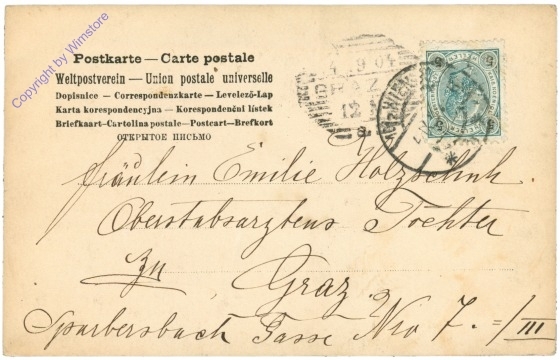 Copyright by Wimstore
Postkarte — Carte postale
Weltpostverein — Union postale universelle
Dopisnice — Correspondenzkarte — Levelező-Lap
Karta korespondencyjna — Korespondenční lístek
Briefkaart—Cartolina postale—Postcart—Brefkort
ОТКРЫТОЕ ПИСЬМО
4 9 04
GRAZ
12
8
5 5
5 5
Fräulein Emilie Holzschuh
Oberstabsarztens Tochter
zu
Graz
Sparbersbach Gasse Nro 7. =/III